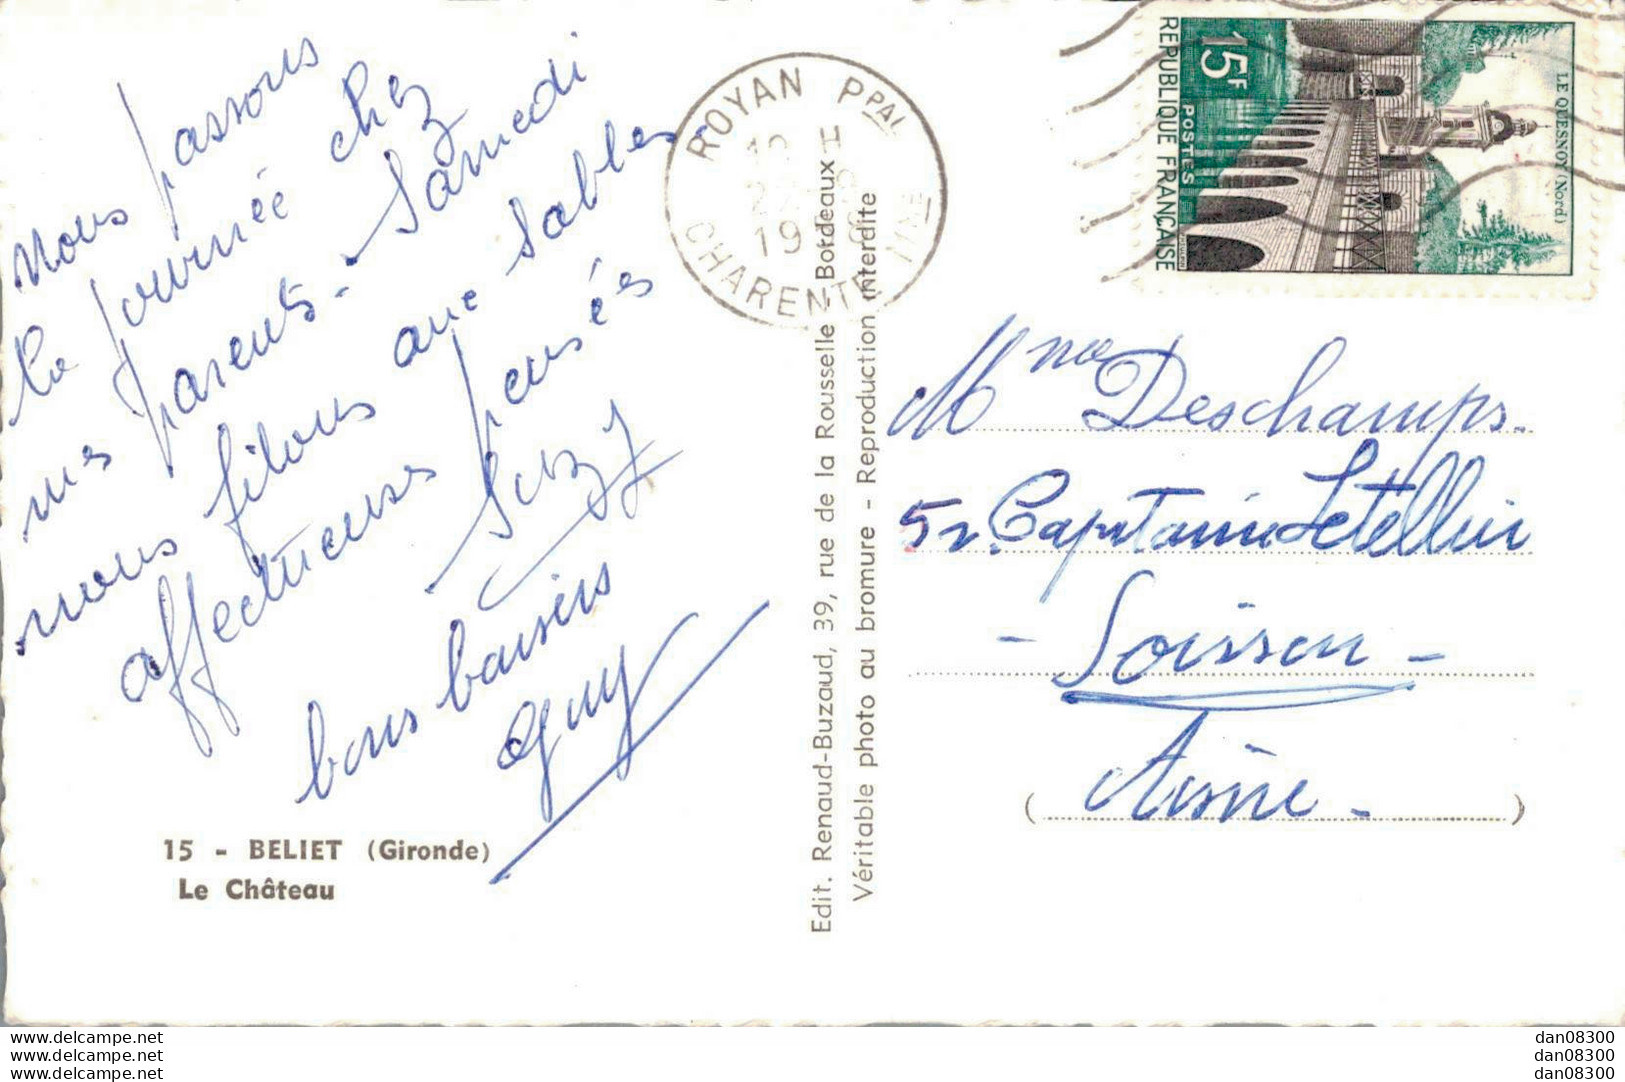 Nous passons
la journée chez
mes parents. Samedi
nous filons aux Sables
affectueuses pensées
Suzy
bons baisers
Guy
15 - BELIET (Gironde)
Le Château
Edit. Renaud-Buzaud, 39, rue de la Rousselle - Bordeaux
Véritable photo au bromure - Reproduction interdite
ROYAN PPAL
19
CHARENTE
15F
POSTES
REPUBLIQUE FRANÇAISE
LE QUESNOY (Nord)
Mme Deschamps.
5 r. Capitaine Letellier
- Soissons -
(Aisne -)
www.delcampe.net
www.delcampe.net
www.delcampe.net
dan08300
dan08300
dan08300